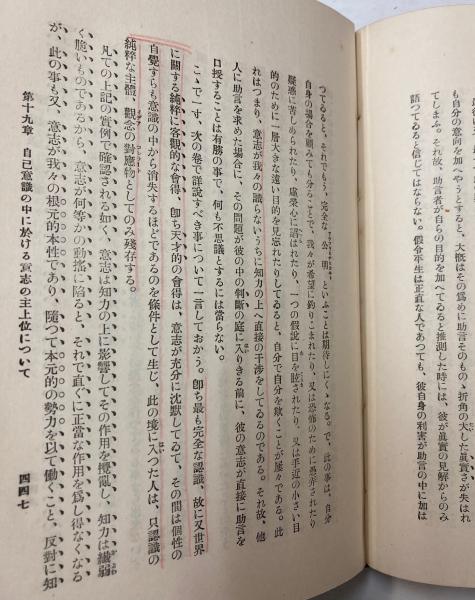 も自分の意向を加へやうとすると、大概はその爲めに助言そのものゝ折角の大した眞實さが失はれ
てしまふ。それ故、助言者が自らの目的を加へてゐると推測した時には、彼が眞實の見解からのみ
語つてゐると信じてはならない。假令平生は正直な人であつても、彼自身の利害が助言の中に加は
つてゐると、それでもう、完全な、公明、といふことは期待しにくゝなる。で、此の事は、自分
自身の場合を顧みても分ることで、我々が希望に釣りこまれたり、又は恐怖のために愚弄されたり
疑惑に苦しめられたり、虚榮心に諂はれたり、一つの假説に目を眩されたり、又は手近の小さい目
的のために一層大きな遠い目的を見忘れたりしてゐると、自分で自分を欺くことが屢々である。此
れはつまり、意志が我々の識らないうちに知力の上へ直接の干渉をしてゐるのである。それ故、他
人に助言を求めた場合に、その問題が彼の中の判斷の庭に入りきる前に、彼の意志が直接に助言を
口授することは有勝の事で、何も不思議とするには當らない。
こゝで一寸、次の卷で詳説すべき事について一言しておかう。卽ち最も完全な認識、故に又世界
に關する純粹に客觀的な會得、卽ち天才的の會得は、意志が充分に沈默してゐて、その間は個性の
自覺すらも意識の中から消失するほどであるのを條件として生じ、此の境に入つた人は、只認識の
純粹な主體、觀念の對應物としてのみ殘存する。
凡ての上記の實例で確認される如く、意志は知力の上に影響してその作用を攪亂し、知力は纎弱
く脆いものであるから、意志が何等かの動搖に陷ると、それで直ぐに正當な作用を爲し得なくなる
が、此の事も又、意志が我々の根元的本性であり、隨つて本元的の勢力を以て働くこと、反對に知
第十九章 自己意識の中に於ける意志の主上位について 四四七